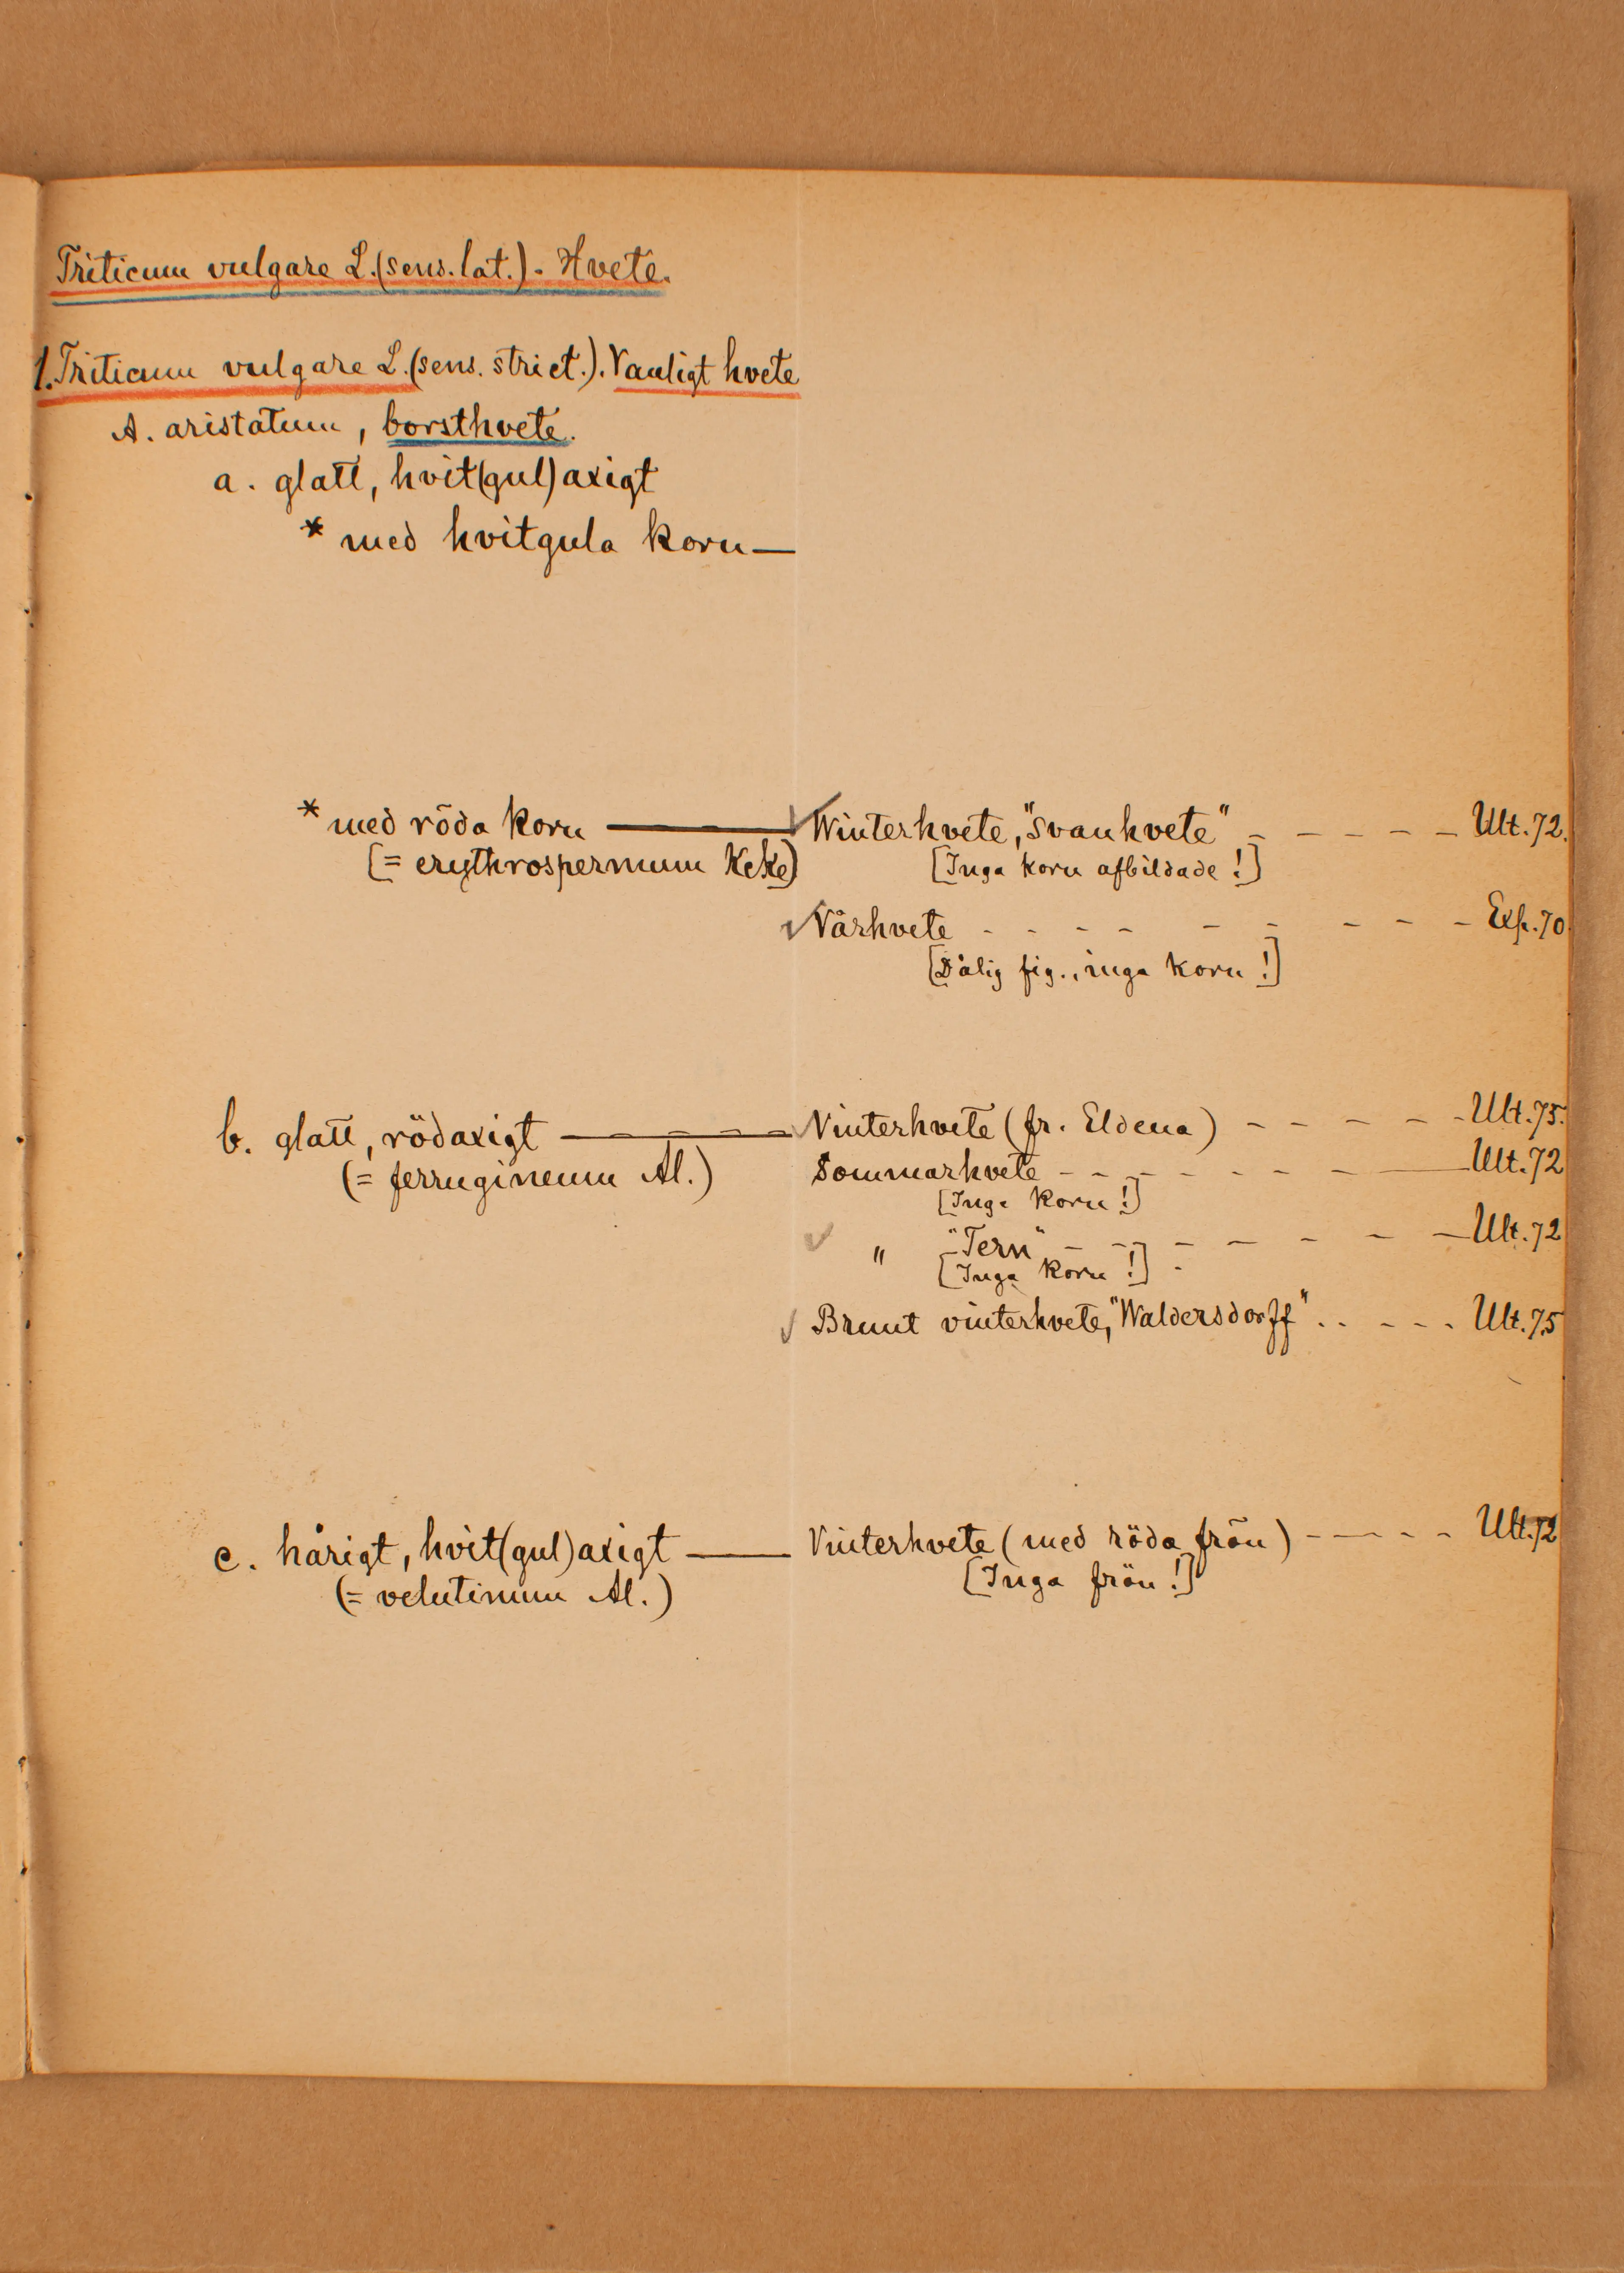 Triticum vulgare L. (sens. lat.) - Hvete.
1. Triticum vulgare L. (sens. strict.). Vanligt hvete
A. aristatum, borsthvete.
a. glatt, hvit(gul)axigt
* med hvitgula korn —
* med röda korn — Winterhvete, "Svanhvete" - - - - - Ult. 72.
[= erythrospermum Kcke] [Inga korn afbildade!]
Vårhvete - - - - - - - - - Exp. 70.
[Dålig fig., inga korn!]
b. glatt, rödaxigt — Vinterhvete (fr. Eldena) - - - - - Ult. 75.
(= ferrugineum Al.) Sommarhvete - - - - - - - — Ult. 72
[Inga korn!]
" "Tern" - - - - - - - Ult. 72
[Inga korn!]
Brunt vinterhvete, "Waldersdorff" . . - - - . Ult. 75
c. hårigt, hvit(gul)axigt — Vinterhvete (med röda frön) - - - - - Ult. 72
(= velutinum Al.) [Inga frön!]